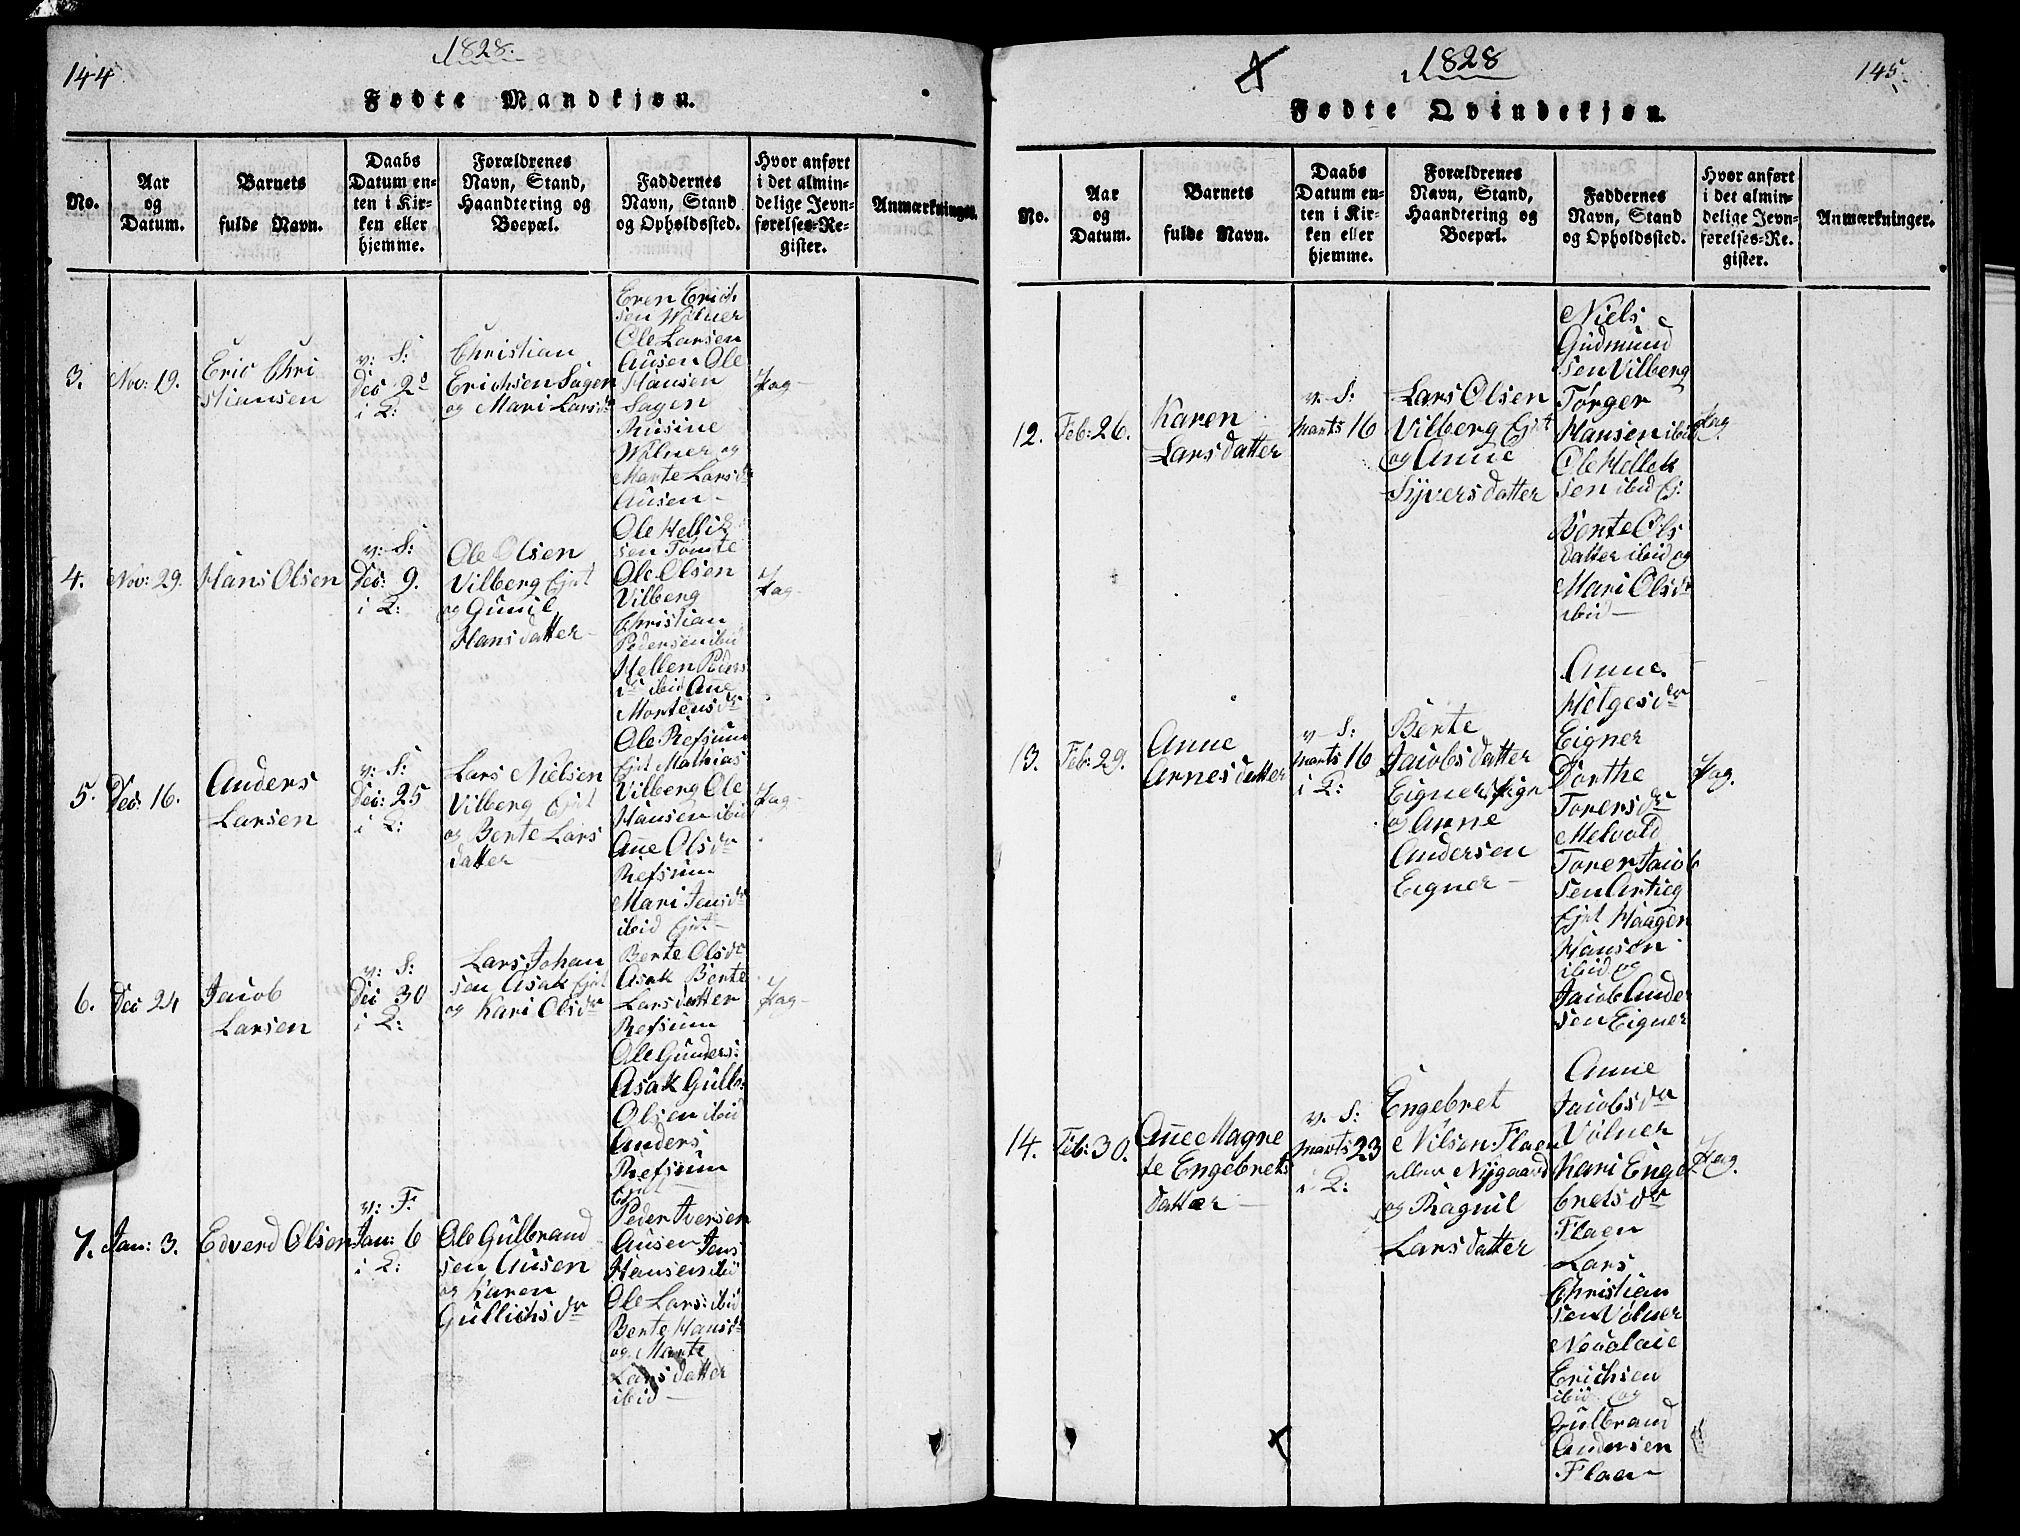 144
1828.
Fødte Mandkjøn.
No.
Aar
og
Datum.
Barnets
fulde Navn.
Daabs
Datum en-
ten i Kir-
ken eller
hjemme.
Forældrenes
Navn, Stand,
Haandtering og
Boepæl.
Faddernes
Navn, Stand
og Opholdssted.
Hvor anført
i det almin-
delige Jevn-
førelses-Re-
gister.
Anmærkninger.
3.
Nov: 19.
Eric Chri
stiansen
v: S:
Dec 2
i K:
Christian
Erichsen Sagen
og Mari Larsdr
Even Erich
sen Wølner
Ole Larsen
Ausen Ole
Hansen
Sagen
Wølner og
Marte Larsdr
Ausen -
Pag -
4.
Nov: 29.
Hans Olsen
v: S:
Dec: 9.
i K:
Ole Olsen
Vilberg Ejnt
og Gunil
Hansdatter -
Ole Hellik
sen Tomte
Ole Olsen
Vilberg
Christian
Pedersen ibid
Hellen Peders
dr ibid Ane
Mortensdr
Pag -
5.
Dec: 16.
Anders
Larsen
v: S:
Dec: 25
i K:
Lars Nielsen
Vilberg Ejnt
og Berte Lars
datter -
Ole Refsum
Ejnt Mathias
Vilberg Ole
Hansen ibid
Ane Olsdr
Refsum
Mari Jensdr
ibid Ejnt -
Pag -
6.
Dec 24
Jacob
Larsen
v: S:
Dec 30
i K:
Lars Johan
sen Asak Ejnt
og Kari Olsdr
Berte Olsdr
Asak Berte
Larsdatter
Refsum
Ole Gunders:
Asak Gulb:
Olsen ibid
Anders
Refsum
Ejnt -
Pag -
7.
Jan: 3.
Edverd Olsen
v: F.
Jan: 6
i K:
Ole Gulbrand
sen Ausen
og Karen
Gullichsdr
Peder Iversen
Ausen Jens
Hansen ibid
Ole Lars: ibid
Berte Hansdr
og Marte
Larsdatter
ibid -
1828
145
Fødte Qvindekjøn.
No.
Aar
og
Datum.
Barnets
fulde Navn.
Daabs
Datum en-
ten i Kir-
ken eller
hjemme.
Forældrenes
Navn, Stand,
Haandtering og
Boepæl.
Faddernes
Navn, Stand
og Opholdssted.
Hvor anført
i det almin-
delige Jevn-
førelses-Re-
gister.
Anmærkninger.
12.
Feb: 26.
Karen
Larsdatter
v: S:
Marts 16
Lars Olsen
Vilberg Ejnt
og Anne
Syversdatter
Niels
Gudmund
sen Vilberg
Torger
Hansen ibid
Ole Hellek
sen ibid Ej:
Berte Ols
datter ibid og
Mari Olsdr
ibid -
Pag.
13.
Feb: 29.
Anne
Arnesdatter
v: S:
Marts 16
i K:
Berte
Jacobsdatter
Eigner
og Arne
Andersen
Eigner -
Anne
Helgesdr
Eigner
Dorthe
Toresdr
Melvold
Torer Jacob
sen
Ejnt Haagen
Hansen
ibid og
Jacob Ander
sen Eigner
Pag.
14.
Feb: 30.
Ane Magre
te Engebrets
datter -
v: S:
Marts 23
i K:
Engebret
Nilsen Flaen
eller Nygaard
og Ragnil
Larsdatter
Anne
Jacobsdr
Vølner
Kari Enge
bretsdr
Flaen
Lars
Christian
sen Vølner
Nicolaie
Erichsen
ibid og
Gulbrand
Andersen
Flaen -
Pag.